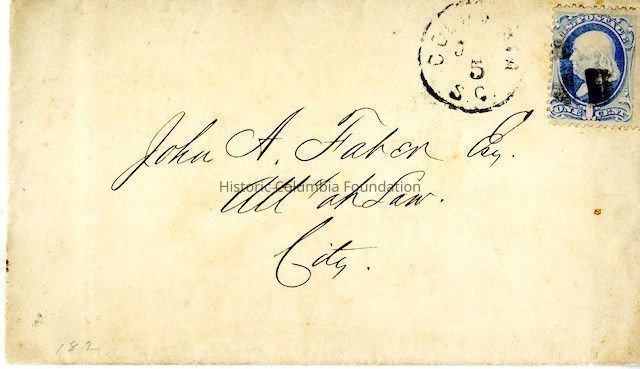 S.C.
5
U.S. POSTAGE
ONE CENT
John A. Faber Esq.
Att at Law.
City.
Historic Columbia Foundation
182